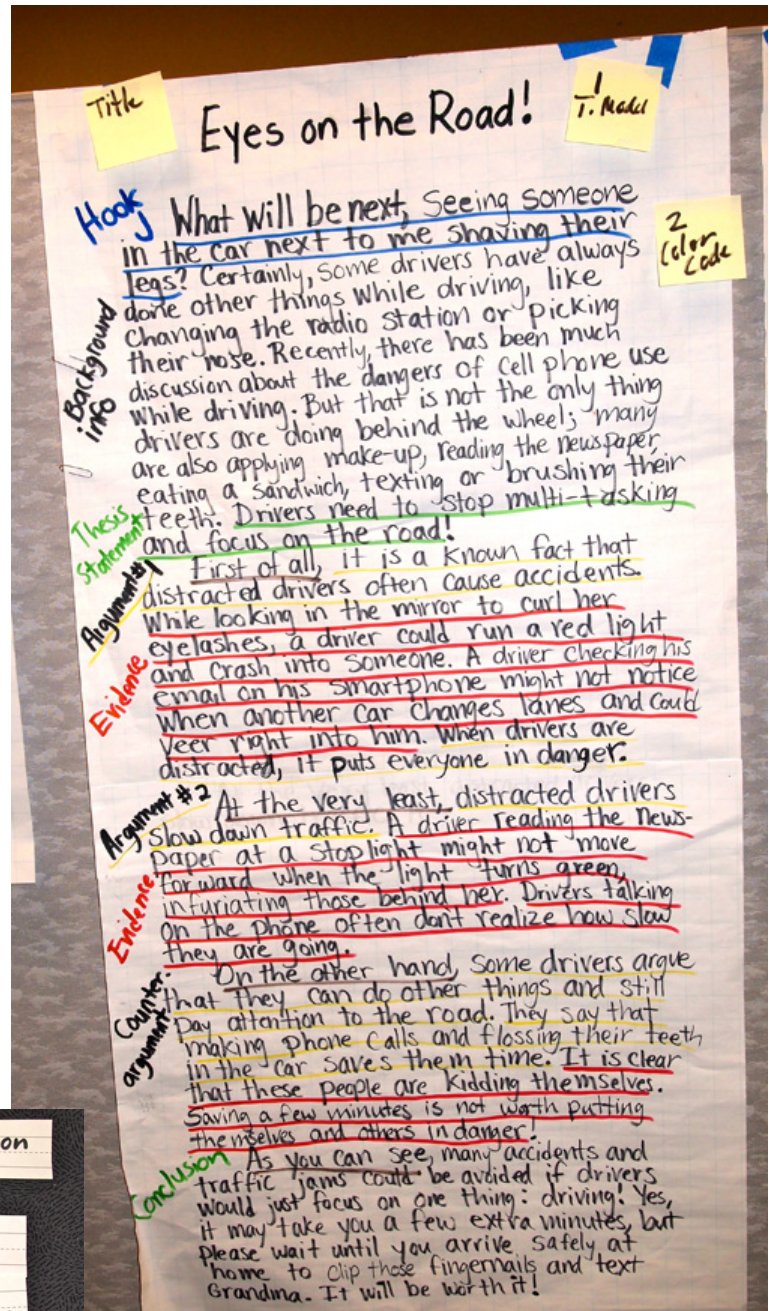 Title
Eyes on the Road!
1
T. Model
2
Color
Code
Hook
What will be next, Seeing someone
in the car next to me shaving their
legs? Certainly, some drivers have always
done other things while driving, like
changing the radio station or picking
their nose. Recently, there has been much
Background
info
discussion about the dangers of cell phone use
while driving. But that is not the only thing
drivers are doing behind the wheel; many
are also applying make-up, reading the newspaper,
eating a sandwich, texting or brushing their
teeth. Drivers need to stop multi-tasking
Thesis
Statement
and focus on the road!
First of all, it is a known fact that
Argument #1
distracted drivers often cause accidents.
While looking in the mirror to curl her
eyelashes, a driver could run a red light
and crash into someone. A driver checking his
Evidence
email on his smartphone might not notice
when another car changes lanes and could
veer right into him. When drivers are
distracted, it puts everyone in danger.
Argument #2
At the very least, distracted drivers
slow down traffic. A driver reading the news-
paper at a stoplight might not move
forward when the light turns green,
Evidence
infuriating those behind her. Drivers talking
on the phone often don't realize how slow
they are going.
On the other hand, some drivers argue
Counter-
argument
that they can do other things and still
pay attention to the road. They say that
making phone calls and flossing their teeth
in the car saves them time. It is clear
that these people are kidding themselves.
Saving a few minutes is not worth putting
themselves and others in danger!
Conclusion
As you can see, many accidents and
traffic jams could be avoided if drivers
would just focus on one thing: driving! Yes,
it may take you a few extra minutes, but
please wait until you arrive safely at
home to clip those fingernails and text
Grandma. It will be worth it!
on